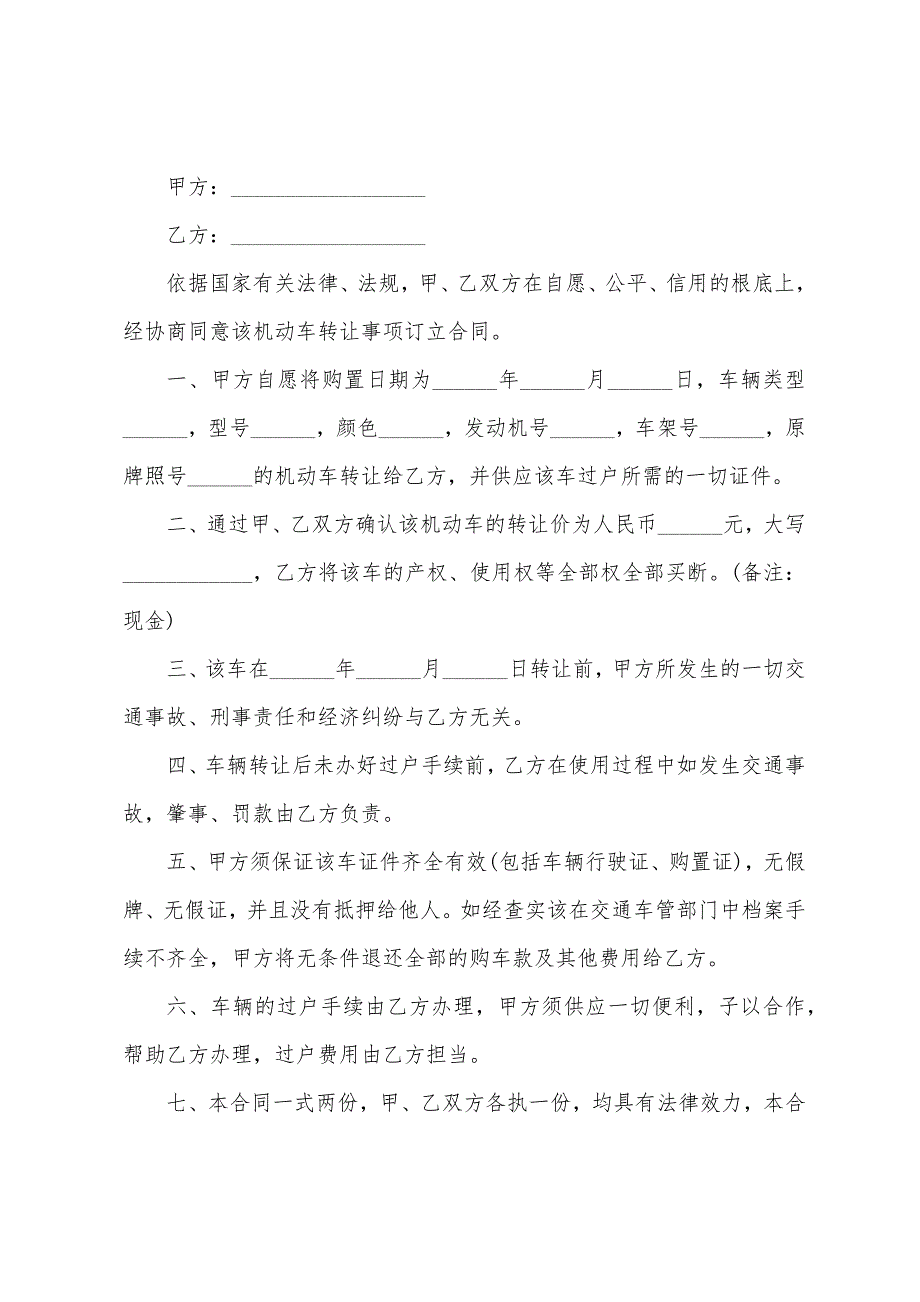 甲方：__________________
乙方：__________________
依据国家有关法律、法规，甲、乙双方在自愿、公平、信用的根底上，
经协商同意该机动车转让事项订立合同。
一、甲方自愿将购置日期为______年______月______日，车辆类型
______，型号______，颜色______，发动机号______，车架号______，原
牌照号______的机动车转让给乙方，并供应该车过户所需的一切证件。
二、通过甲、乙双方确认该机动车的转让价为人民币______元，大写
____________，乙方将该车的产权、使用权等全部权全部买断。(备注：
现金)
三、该车在______年______月______日转让前，甲方所发生的一切交
通事故、刑事责任和经济纠纷与乙方无关。
四、车辆转让后未办好过户手续前，乙方在使用过程中如发生交通事
故，肇事、罚款由乙方负责。
五、甲方须保证该车证件齐全有效(包括车辆行驶证、购置证)，无假
牌、无假证，并且没有抵押给他人。如经查实该在交通车管部门中档案手
续不齐全，甲方将无条件退还全部的购车款及其他费用给乙方。
六、车辆的过户手续由乙方办理，甲方须供应一切便利，子以合作，
帮助乙方办理，过户费用由乙方担当。
七、本合同一式两份，甲、乙双方各执一份，均具有法律效力，本合